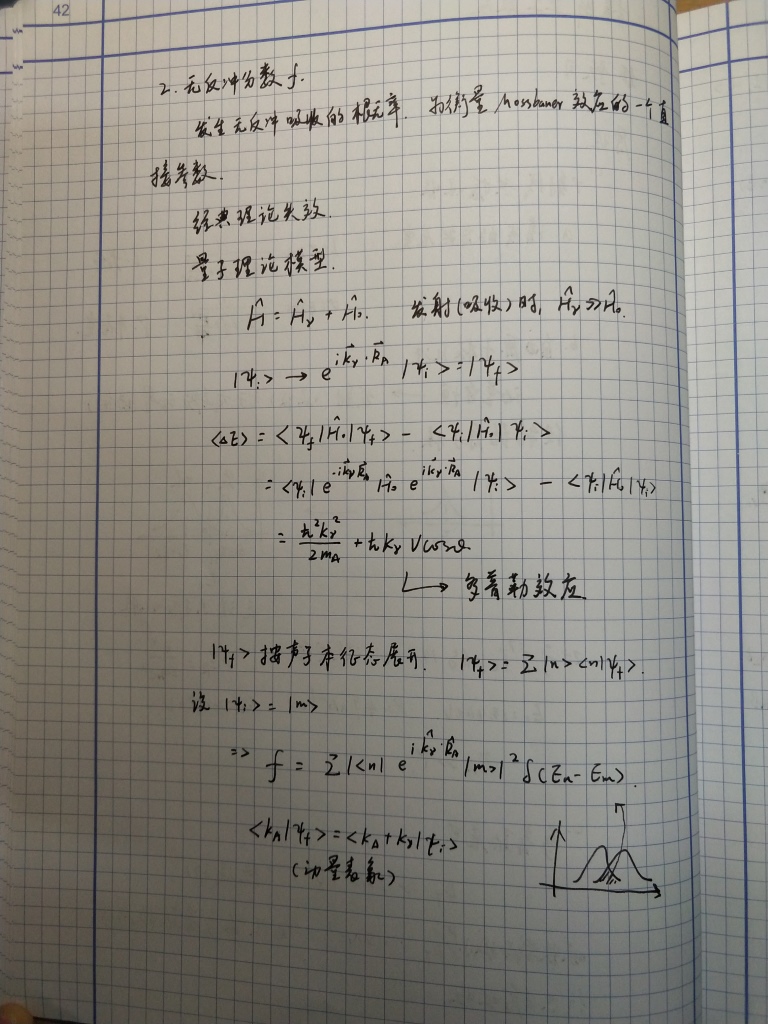 42
2. 无反冲分数 f.
发生无反冲吸收的概率. 为衡量 Mossbauer 效应的一个直
接参数.
经典理论失效.
量子理论模型.
Ĥ = Ĥ_γ + Ĥ₀. 发射(吸收)时, Ĥ_γ >> Ĥ₀.
|ψ_i> → e^{i k⃗_γ·R⃗_A} |ψ_i> = |ψ_f>
<ΔE> = <ψ_f|Ĥ₀|ψ_f> - <ψ_i|Ĥ₀|ψ_i>
= <ψ_i| e^{-i k⃗_γ·R⃗_A} Ĥ₀ e^{i k⃗_γ·R⃗_A} |ψ_i> - <ψ_i|Ĥ₀|ψ_i>
= ħ²k_γ²/2m_A + ħk_γ V cosθ
↳ 多普勒效应
|ψ_f> 按声子本征态展开. |ψ_f> = Σ|n><n|ψ_f>.
设 |ψ_i> = |m>
=> f = Σ|<n| e^{i k̂_γ·R̂_A} |m>|² δ(E_n - E_m).
<k_A|ψ_f> = <k_A + k_γ|ψ_i>
(动量表象)